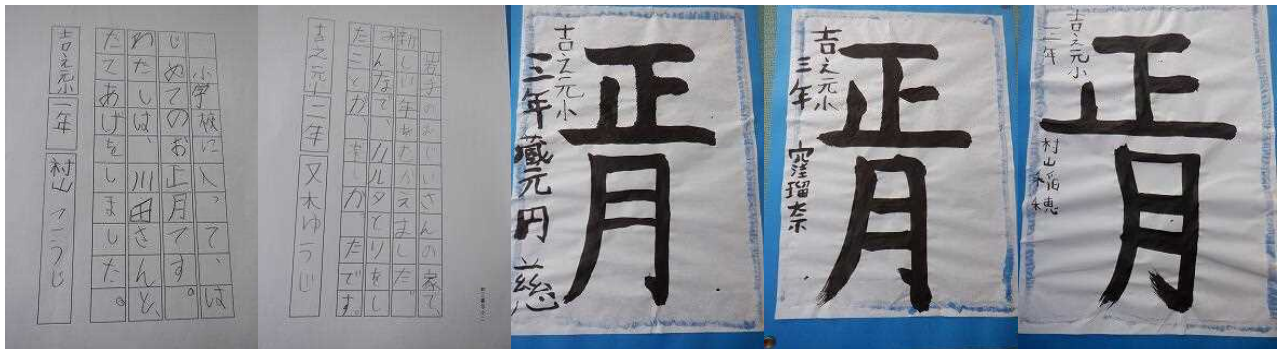 小学校に入って、は
じめてのお正月です。
わたしは、川田さんと、
たてあげをしました。
吉之元小 一年 村山
のおじいさんの家で、
新しい年をむかえました。
みんなで、カルタとりをし
たことが
たです。
吉之元小 二年 又木ゆうじ
正月
吉之元小
三年 蔵元円慈
正月
吉之元小
三年 窪瑠奈
正月
吉之元小
村山